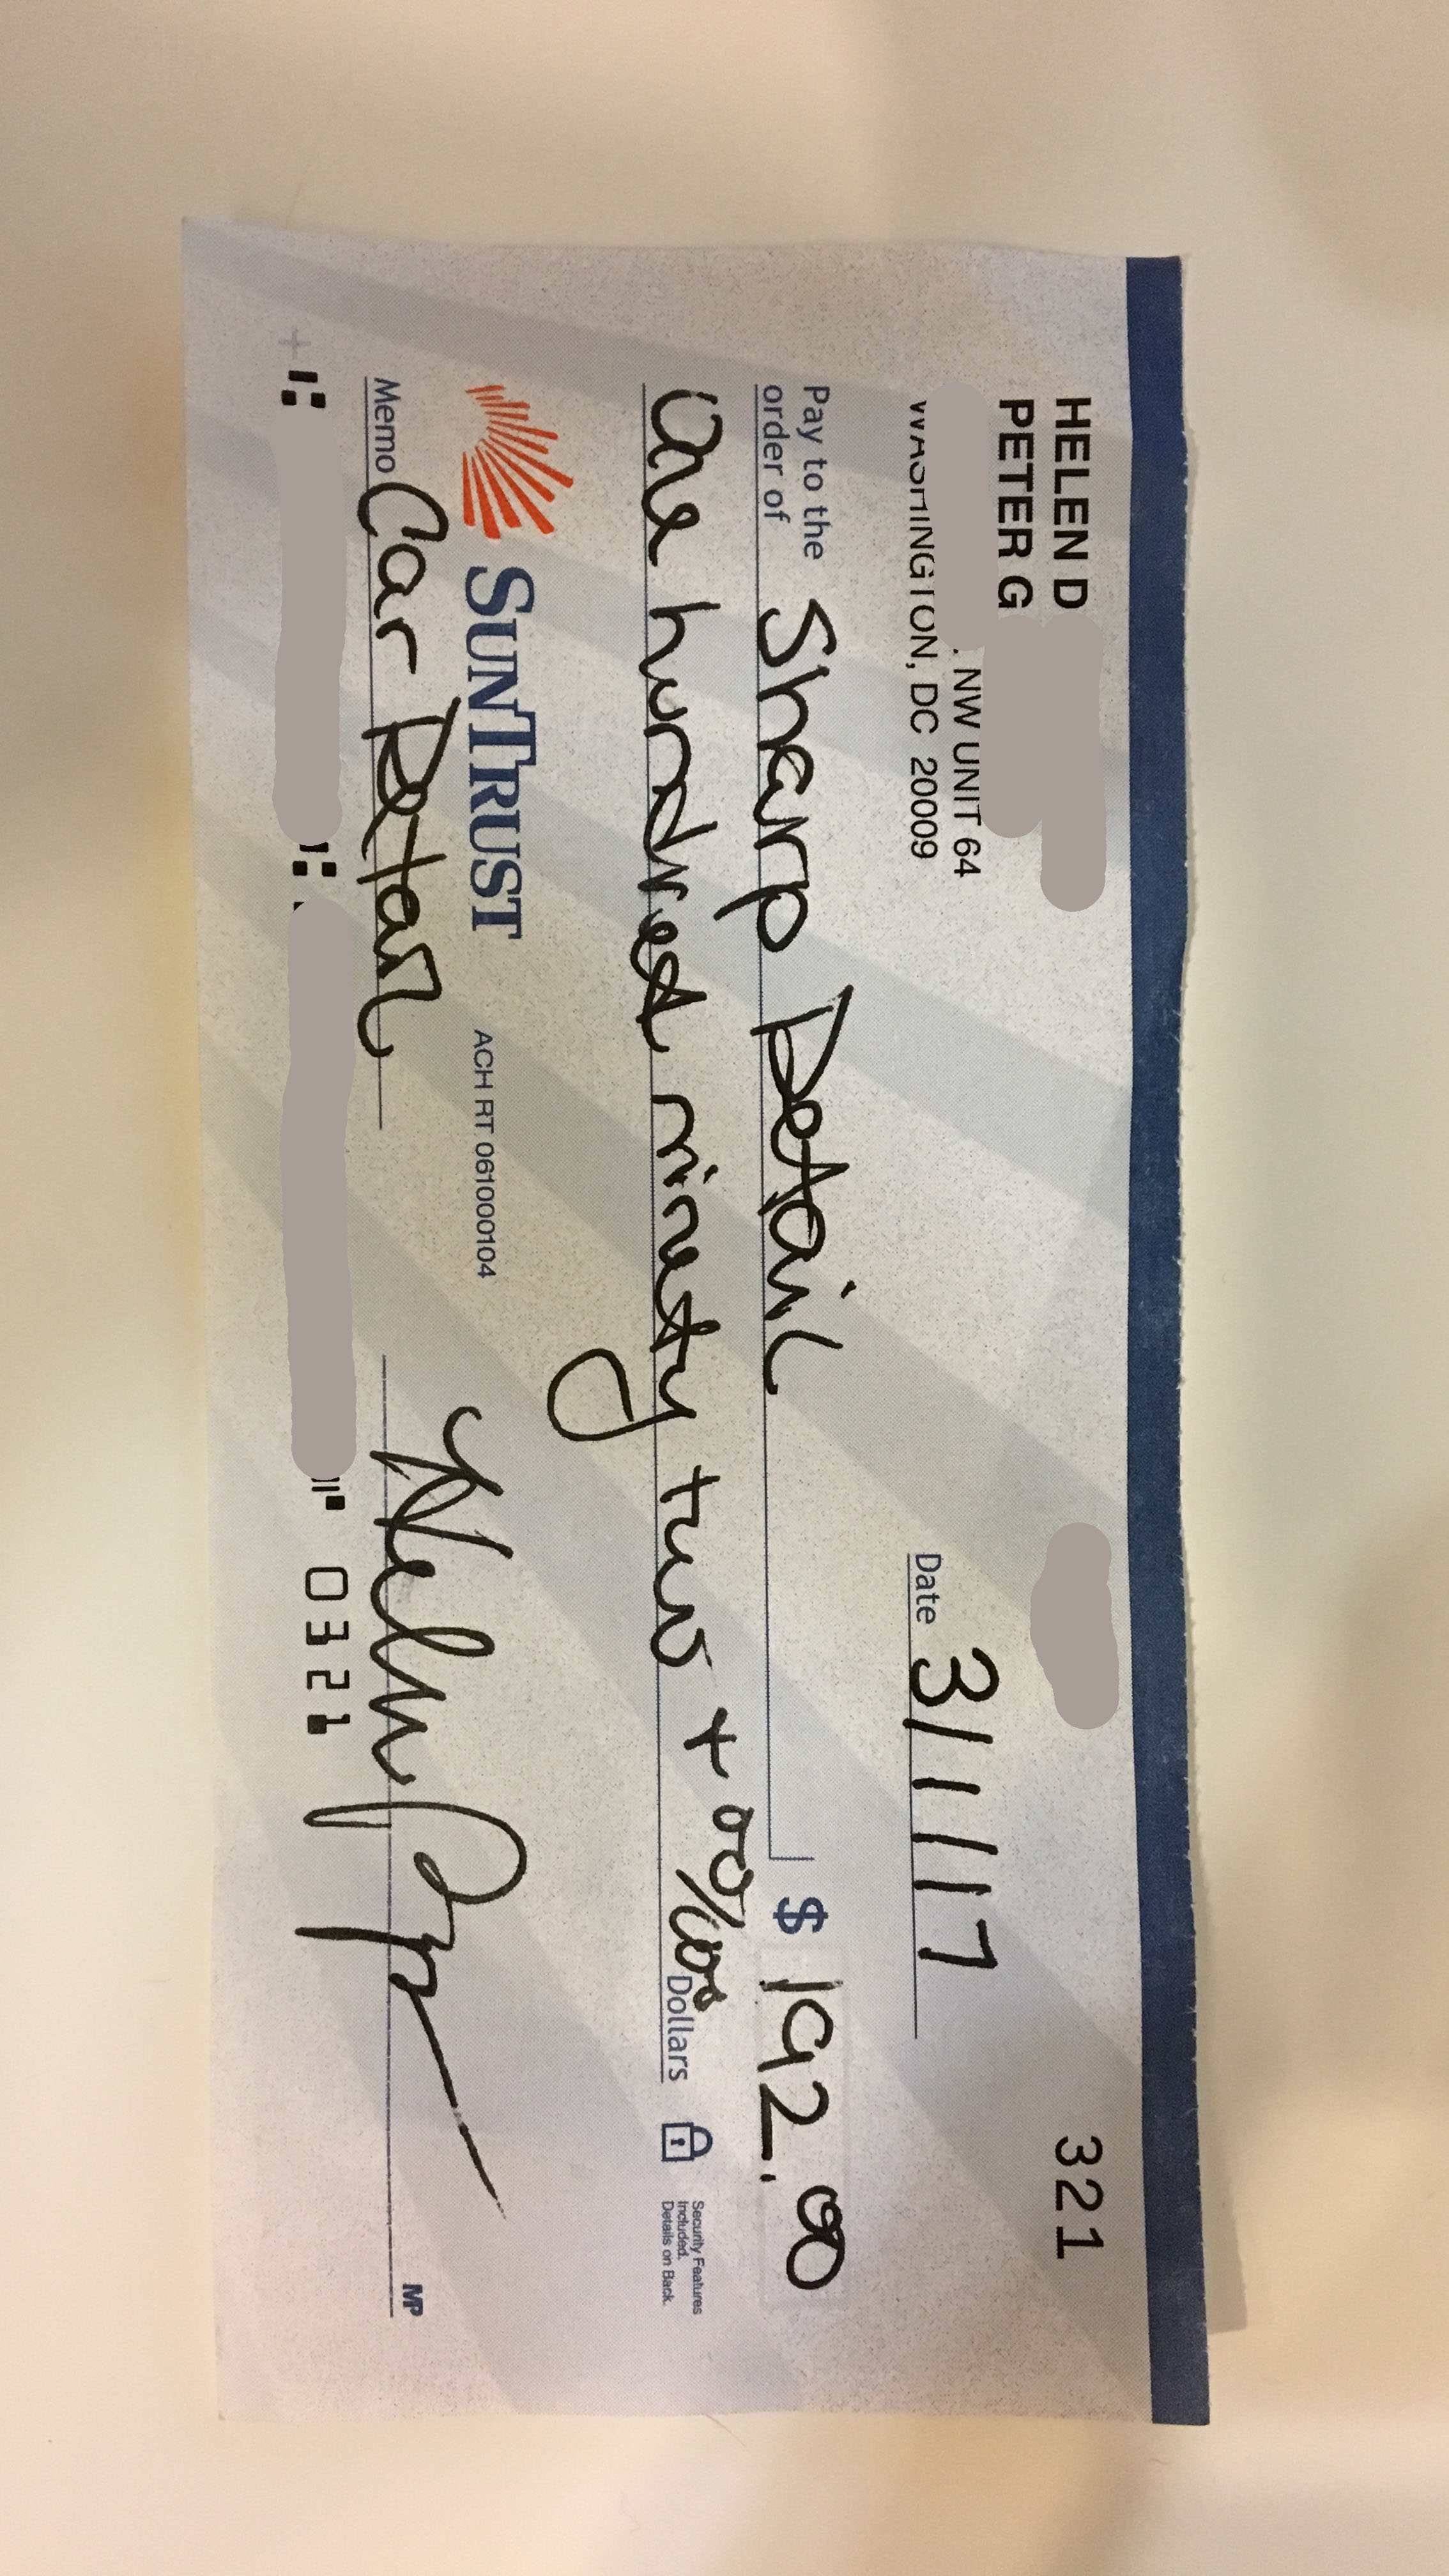 HELEN D
PETER G
. NW UNIT 64
WASHINGTON, DC 20009
321
Date 3/1/17
Pay to the
order of Sharp Detail $ 192.00
One hundred ninety two + 00/100 Dollars
Security Features
Included.
Details on Back.
SUNTRUST ACH RT 061000104
Memo Car Detail
MP
0321